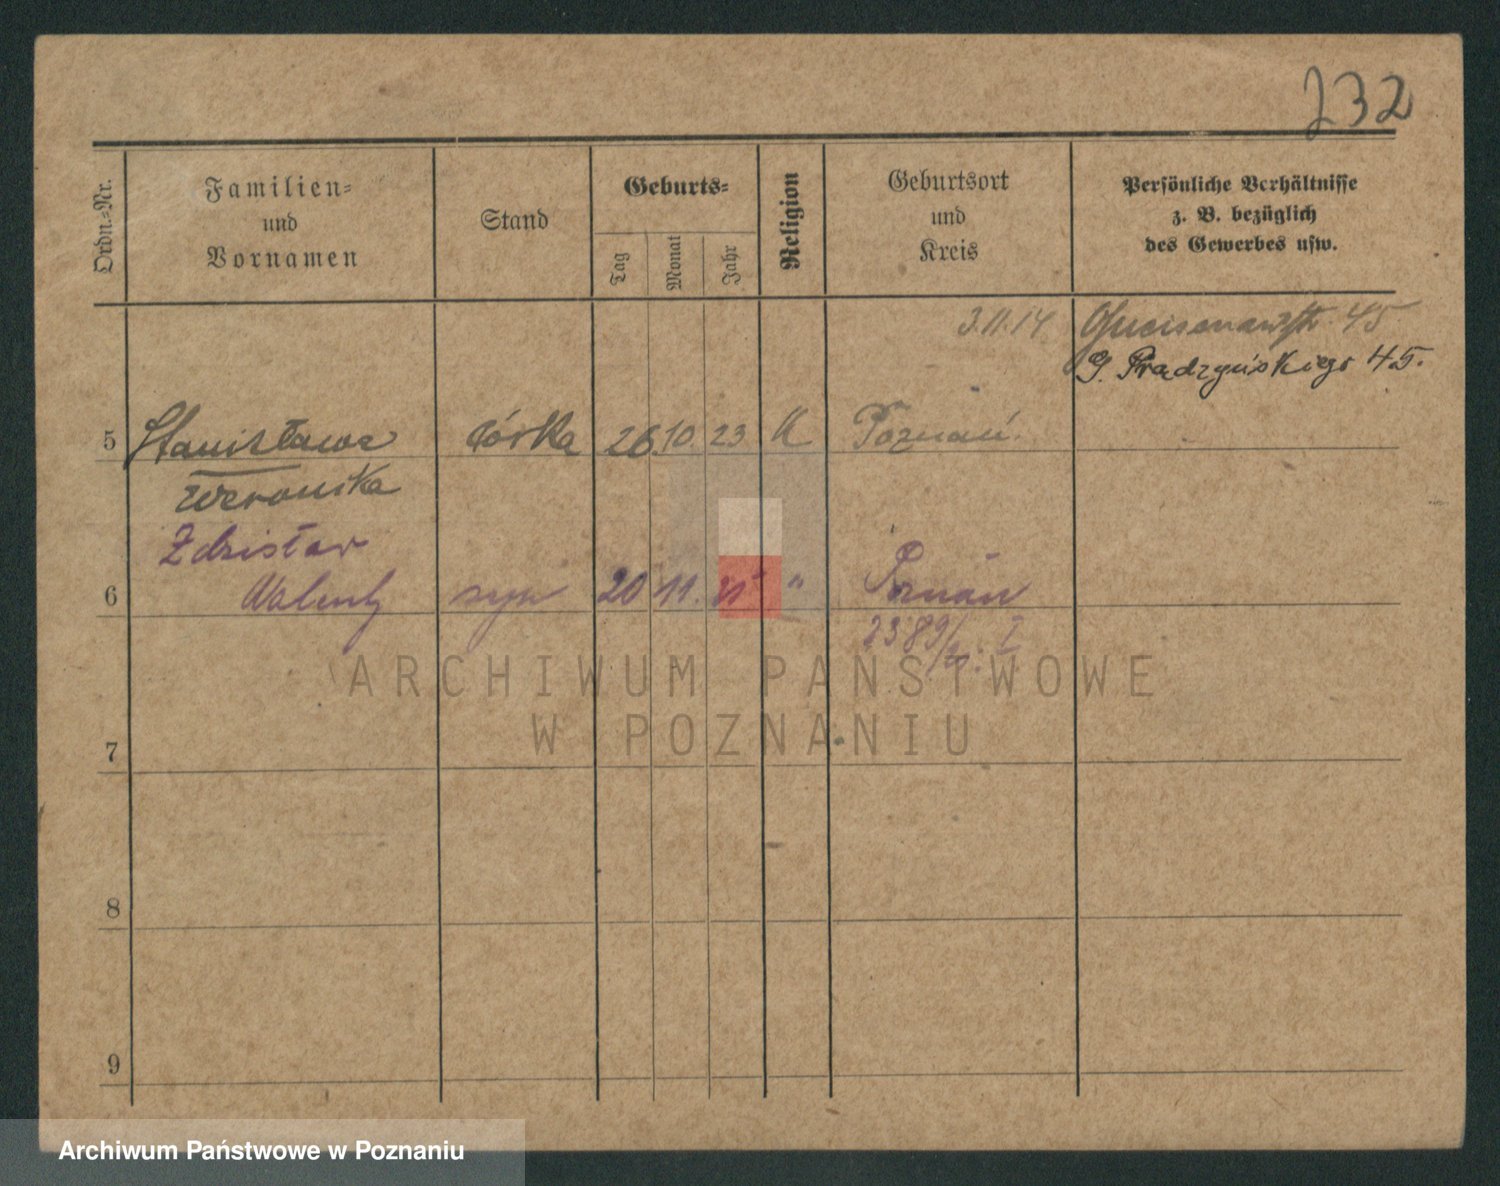 232
Ordn.-Nr.
Familien-
und
Vornamen
Stand
Geburts-
Tag
Monat
Jahr
Religion
Geburtsort
und
Kreis
Persönliche Verhältnisse
z. B. bezüglich
des Gewerbes usw.
3.11.14 Gneisenaustr 45
G. Prądzyńskiego 45.
5 Stanisława córka 26. 10. 23 K Poznań.
Weronika
Zdzisław
6 Walenty syn 20 11. " Poznań
2389/ I
ARCHIWUM PAŃSTWOWE
W POZNANIU
7
8
9
Archiwum Państwowe w Poznaniu